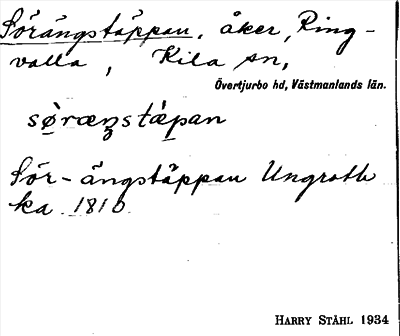 Sörängstäppan, åker, Ring-
valla, Kila sn,
Övertjurbo hd, Västmanlands län.
sö̀ræŋstäpan
Sör-ängstäppan Ungrothe
ka 1810.
HARRY STÅHL 1934